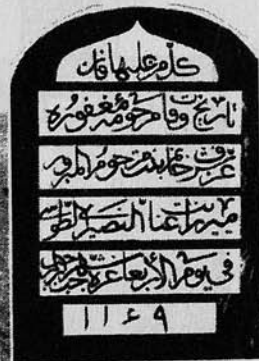 كل من عليها فان
تاريخ وفات مرحومه مغفوره
خانم بنت مرحوم المبرور
میرزا عنایت النصیر الطوسی
في يوم الأربعا غره شهر
۱۱۴۹